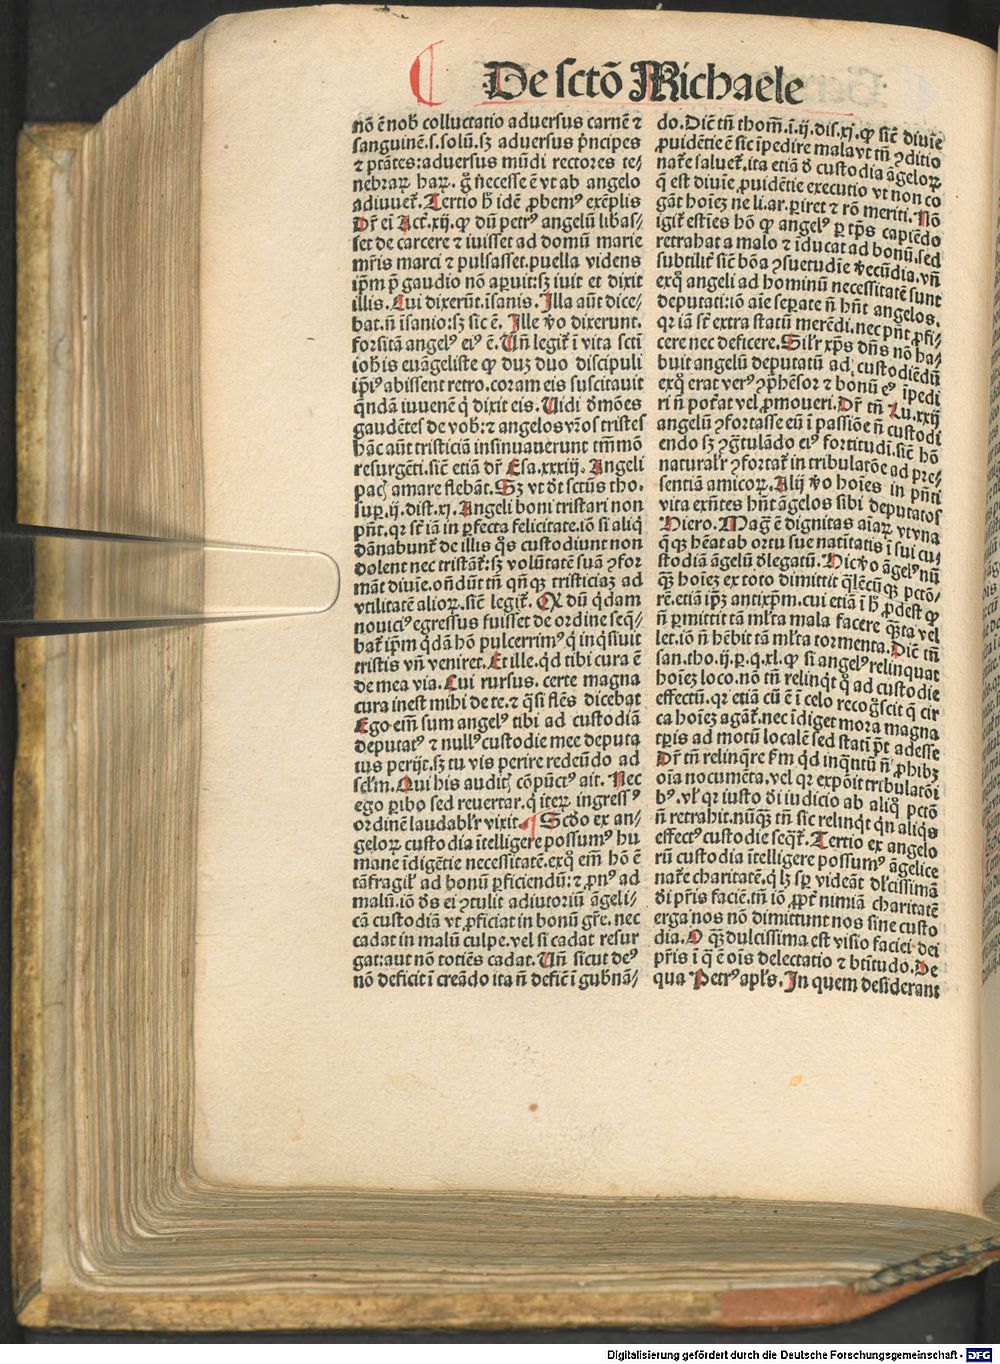 De sctō Michaele
nō ē nob̄ colluctatio adversus carnē ⁊
sanguinē.s.solū.sꝫ adversus pͥncipes
⁊ ptātes:adversus mūdi rectores te-
nebraꝝ haꝝ. gͦ ñecesse ē vt ab angelo
adiuuet᷑. Tertio ħ idē ꝓbemꝰ exēplis
Dr̄ eī Act᷑.xij.ꝙ dū petrꝰ angelū libas-
set de carcere ⁊ iuisset ad domū marie
mr̄is marci ⁊ pulsasset.puella videns
ip̄m p̄ gaudio nō aꝑuit:sꝫ iuit et dixit
illis. Cui dixerūt.īsanis. Illa aūt dice-
bat.ñ īsanio:sꝫ sic ē. Ille ꝟo dixerunt.
forsitā angelꝰ eiꝰ ē. Uñ legit᷑ ī vita scti
ioh̄is euāgeliste ꝙ duꝫ duo discipuli
ip̄iꝰ abissent retro.coram eis suscitauit
q̄ndā iuuenē qͥ dixit eis. Uidi ōmōes
gaudētes de vob̄:⁊ angelos vr̄os tristes
hāc aūt tristiciā insinuauerunt tm̄mō
resurgēti.sic̄ etiā dr̄ Esa.xxxiij. Angeli
pacꝭ amare flebāt. Sꝫ vt dt̄ sctūs tho.
suꝑ.ij.dist.xj. Angeli boni tristari non
pñt.qꝛ sc̄ iā in ꝑfecta felicitate.iō si aliqͥ
dānabunt᷑ de illis qͦs custodiunt non
dolent nec tristāt᷑:sꝫ volūtatē suā ꝯfor
māt diuīe.oñdūt tñ qñqꝫ tristiciaꝫ ad
vtilitatē alioꝝ.sic̄ legit᷑. Qꝫ dū qͥdam
nouiciꝰ egressus fuisset de ordine seq̄-
bat᷑ ip̄m qͥdā hō pulcerrimꝰ qͥ inqͥsiuit
tristis vñ veniret. Et ille.qͥd tibi cura ē
de mea via. Cui rursus. certe magna
cura inest mihi de te.⁊ qͣsi flēs dicebat
Ego em̄ sum angelꝰ tibi ad custodiā
deputatꝰ ⁊ nullꝰ custodie mee deputa
tus perijt.sꝫ tu vis perire redeūdo ad
scl̄m. Qui his auditꝭ cōpūctꝰ ait. Nec
ego ꝑibo sed reuertar.qͥ iteꝝ ingressꝰ
ordinē laudabl̓r vixit. Scd̄o ex an-
geloꝝ custodia ītelligere possumꝰ hu
mane īdigētie necessitatē.exqͦ em̄ hō ē
tā fragil̓ ad bonū ꝑficiendū:⁊ ꝓnꝰ ad
malū.iō ds̄ ei ꝯtulit adiutoriū āgeli-
cā custodiā vt ꝓficiat in bonū gr̄e. nec
cadat in malū culpe.vel si cadat resur
gat:aut nō totiēs cadat. Uñ sicut deꝰ
nō deficit ī creādo ita ñ defic̄ ī gub̄nā-
do. Dic̄ tñ thom̄.ī.ij.dis.xj.ꝙ sic̄ diuīe
ꝓuidētie ē sic īpedire mala vt tñ ꝯditio
nat᷑e saluet᷑.ita etiā ō custodia āgeloꝝ
q̄ est diuīe ꝓuidētie executio vt non co
gāt hoīeꝫ ne li.ar.ꝑiret ⁊ rō meriti. Nō
igit᷑ estīes hō ꝙ angelꝰ ꝑ tp̄s capiēdo
retrahat a malo ⁊ īducat ad bonū.sed
subtilit᷑ sic̄ bōa ꝯsuetudīe ꝟecūdia.vñ
exqͦ angeli ad hominū necessitatē sunt
deputati:iō aīe seꝑate ñ hñt angelos.
qꝛ iā sc̄ extra statū merēdi.nec pñt ꝓfi-
cere nec deficere. Sil̓r xp̄s dñs nō ha-
buit angelū deputatū ad custodiēdū
exqͦ erat verꝰ ꝯp̄hēsor ⁊ bonū eꝰ īpedi
ri ñ pot᷑at vel ꝓmoueri. Dr̄ tñ Lu.xxij
angelū ꝯfortasse eū ī passiōe ñ custodi
endo sꝫ ꝯgͣtulādo eiꝰ fortitudī.sic̄ hō
natural̓r ꝯfortat᷑ in tribulatōe ad pre-
sentiā amicoꝝ. Alij ꝟo hoīes in pñti
vita exñtes hñt āgelos sibi deputatos
Hiero. Magͣ ē dignitas aīaꝝ vt vna
q̄qꝫ hēat ab ortu sue natītatis ī sui cu-
stodiā āgelū delegatū. Nic̄ ꝟo āgelꝰ nū
qͣꝫ hoīeꝫ ex toto dimittit qͣlēcūqꝫ pctō-
rē.etiā ip̄ꝫ antixp̄m.cui etiā ī ħ ꝓdest ꝙ
ñ ꝑmittit tā ml̓ta mala facere qͣta vel
let.iō ñ hēbit tā ml̓ta tormenta. Dic̄ tñ
san.tho.ij.p.q.xl.ꝙ si angelꝰ relinquat
hoīeꝫ loco.nō tñ relinqͥt qͦ ad custodie
effectū.qꝛ etiā cū ē ī celo recoḡscit q̄ cir
ca hoīeꝫ agāt᷑.nec īdiget mora magna
tꝑis ad motū localē sed stati p̄t adesse
Dr̄ tñ relinq̄re km̄ qͥd inqͣntū ñ ꝓhibꝫ
oīa nocumēta.vel qꝛ expōit tribulatōi
bꝰ.vl̓ qꝛ iusto di iudicio ab aliqͦ pctō
ñ retrahit.nūqͣꝫ tñ sic relinqͥt qn̄ aliqͥs
effectꝰ custodie seqͣt᷑. Tertio ex angelo
rū custodia ītelligere possumꝰ āgelice
nat᷑e charitatē.qͥ lꝫ sꝑ videāt dl̓cissimā
di pr̄is faciē.tñ iō ꝓpt᷑ nimiā charitatē
erga nos nō dimittunt nos sine custo
dia. O qͣꝫ dulcissima est visio faciei dei
pr̄is ī q̄ ē oīs delectatio ⁊ btītudo. De
qua Petrꝰ apl̓s. In quem desiderant
Digitalisierung gefördert durch die Deutsche Forschungsgemeinschaft - DFG